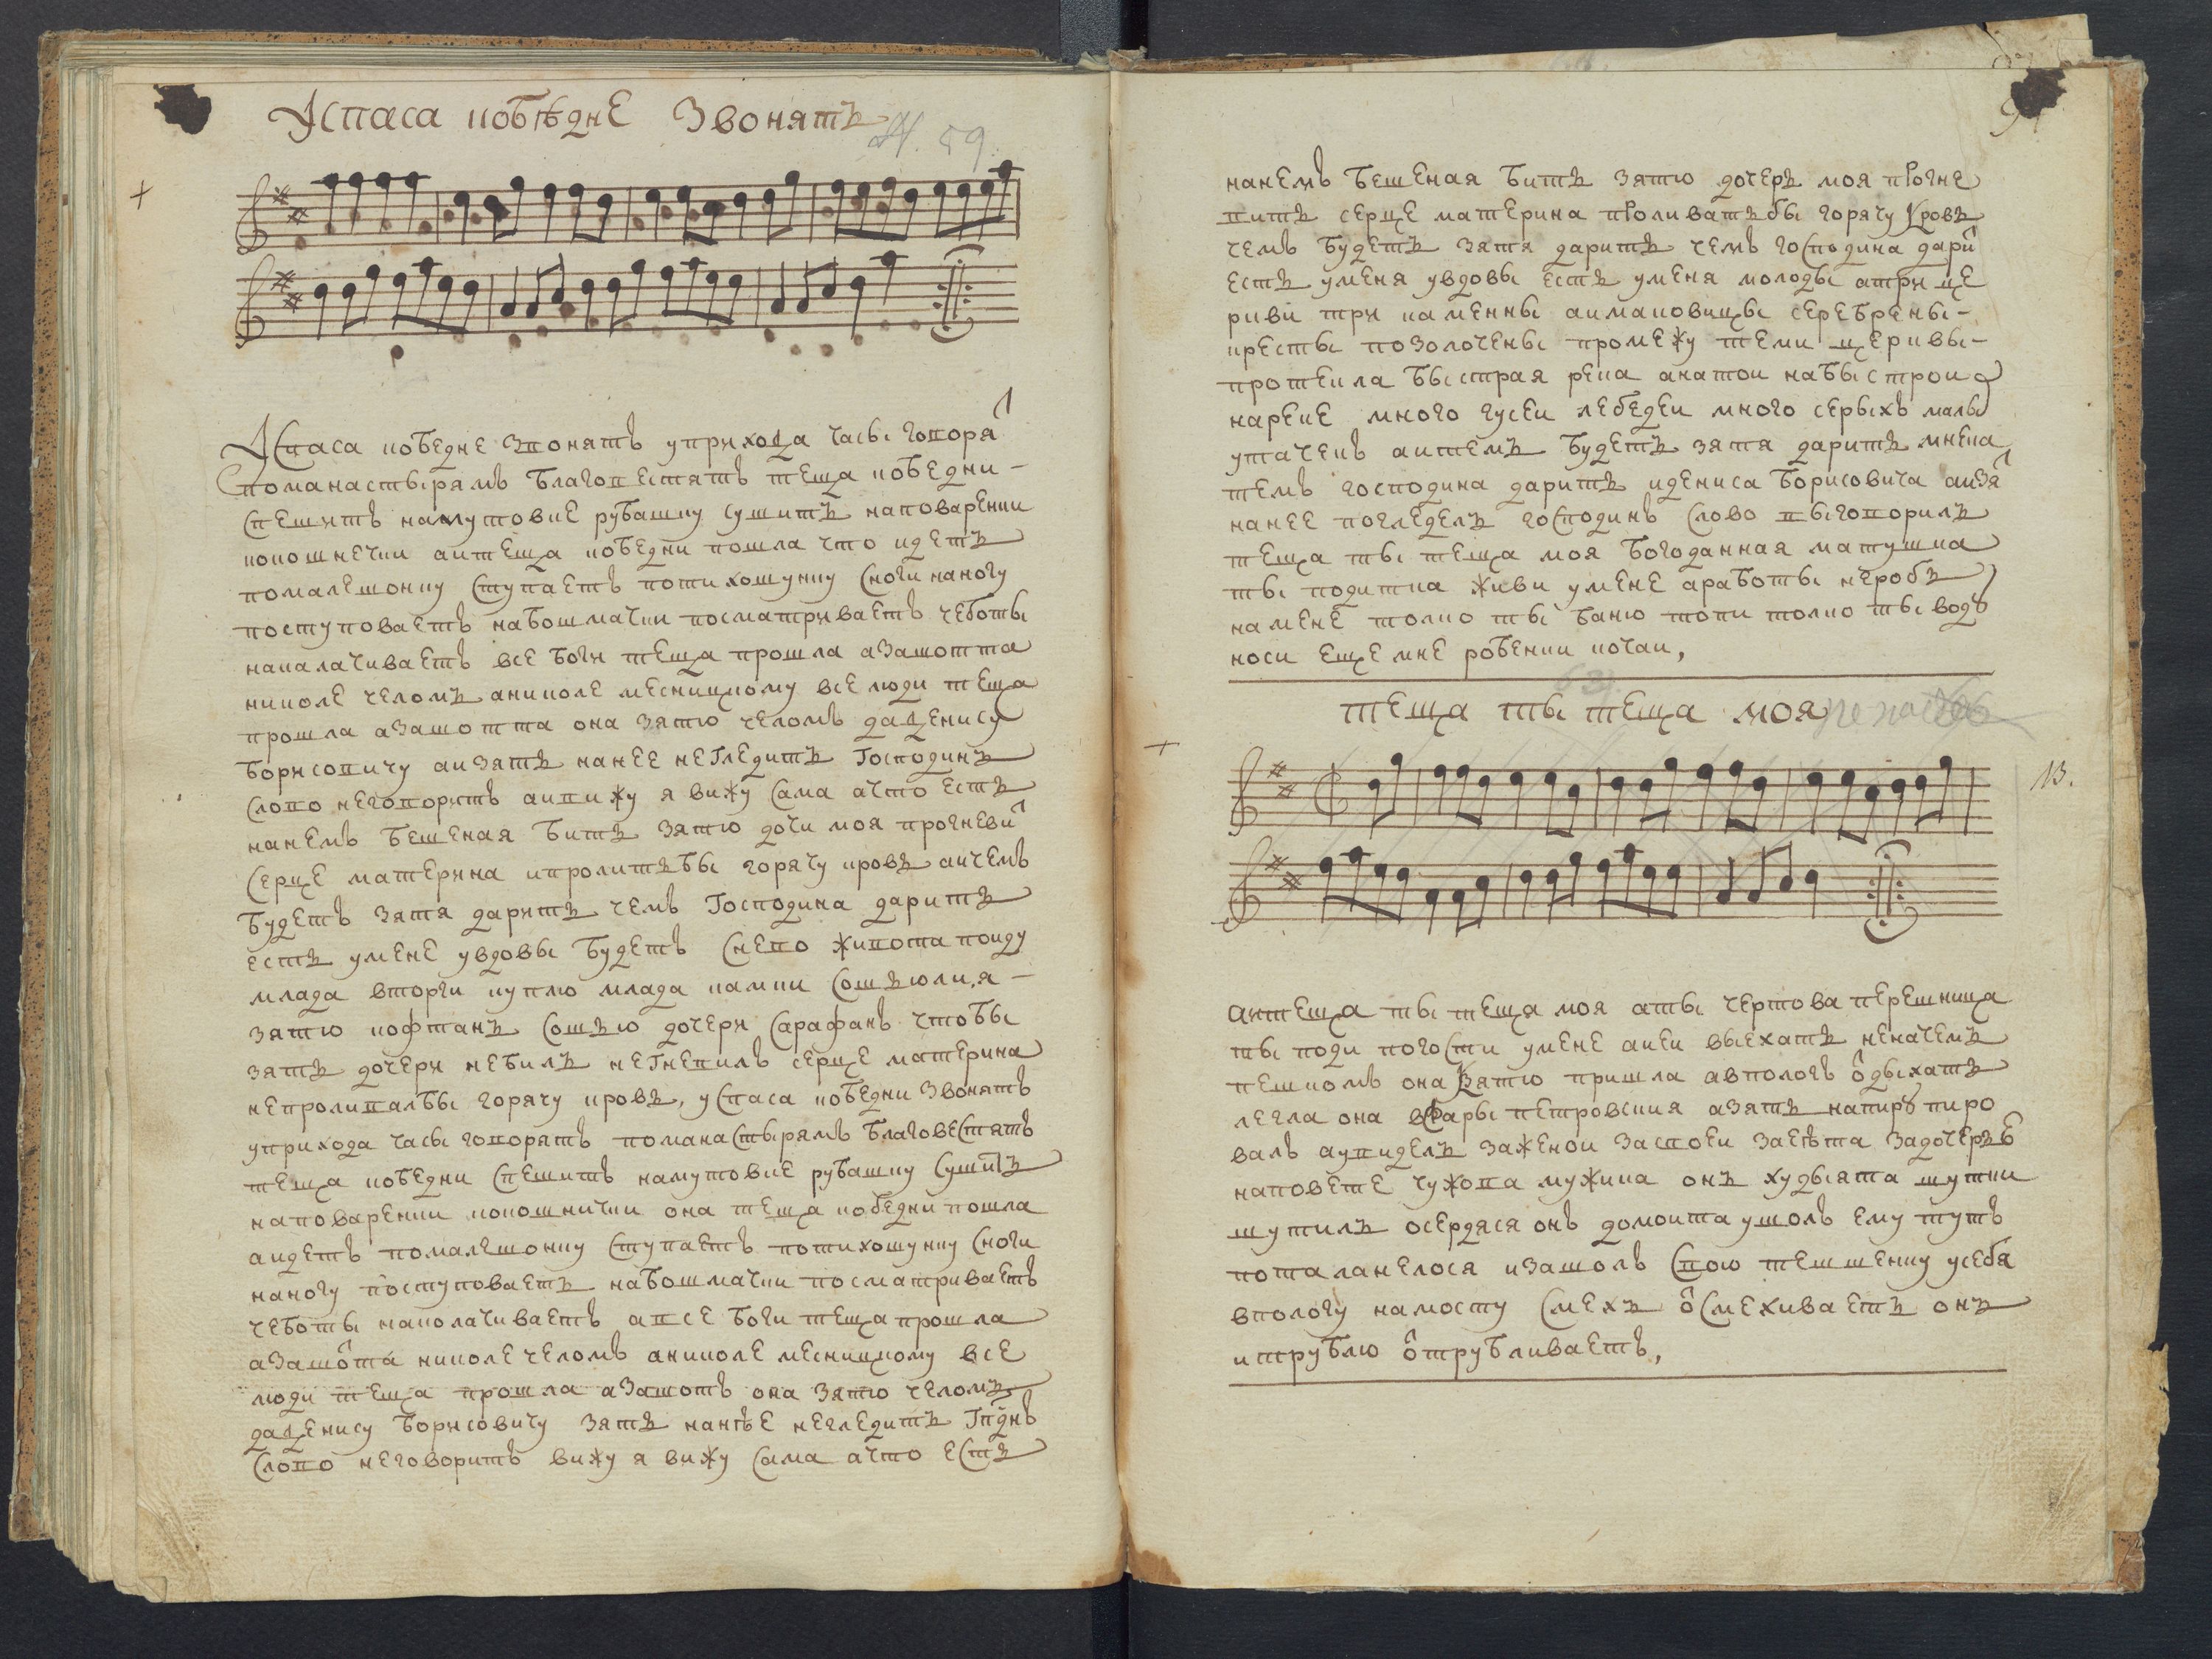 Успаса кобѣдне Звонятъ
№. 59.
Успаса кобедне звонятъ уприхода часы говоря т
поманастырямъ благовестятъ теща кобедни –
спешитъ намутовке рубашку сушитъ наповаренки
кокошнечки аитеща кобедни пошла что идетъ
помалешонку ступаетъ потихошунку сноги наногу
поступоваетъ набошмачки посматриваетъ чеботы
наколачиваетъ все боги теща прошла азашотта
николе челомъ аниколе месницкому все люди теща
прошла азашотта она зятю челомъ даденису
борисовичу аизять нанее негледитъ Господинъ
слово неговоритъ аивижу я вижу сама ачто есть
нанемъ бешеная бить зятю дочи моя прогневи т
серце материна ипролитьбы горячу кровь аичемъ
будетъ зятя дарить чемъ Господина дарить
есть умене увдовы будетъ снево живота поиду
млада вторги куплю млада камки сошьюли,я –
зятю кофтанъ сошью дочери сарафанъ чтобы
зять дочери небилъ негневилъ серце материна
непроливалбы горячу кровь, успаса кобедни звонятъ
уприхода часы говорятъ поманастырямъ благовестятъ
теща кобедни спешитъ намутовке рубашку сушитъ
наповаренки кокошнички она теща кобедни пошла
аидетъ помалешонку ступаетъ потихошунку сноги
наногу поступоваетъ набошмачки посматриваетъ
чеботы наколачиваетъ авсе боги теща прошла
азашота николе челомъ аниколе месницкому все
люди теща прошла азашотъ она зятю челомъ
даденису борисовичу зять нанѣе негледитъ Гпднъ
слово неговоритъ вижу я вижу сама ачто есть
нанемъ бешеная бить зятю дочерь моя прогне
вить серце материна проливатьбы горячу кровь
чемъ будетъ зятя дарить чемъ господина дари т
есть уменя увдовы есть уменя молоды атри це
ркви три каменны аимаковицы серебрены –
кресты позолочены промежу теми церквы –
протекла быстрая река анатои набыстрои
нареке много гусеи лебедеи много серыхъ малы
утачекъ аитемъ будетъ зятя дарить мнека
темъ господина дарить идениса борисовича аизя т
нанее погледелъ господинъ слово выговорилъ
теща ты теща моя богоданная матушка
ты подитка живи умене аработы неробь
намене толко ты баню топи толко ты воду
носи еще мне робенки качаи,
теща ты теща моя
13.
аитеща ты теща моя аты чертова перешница
ты поди погости умене аиеи выехать неначемъ
пешкомъ она кзятю пришла авпологъ одыхать
легла она вфары петровския азять напиру пиро
валъ аувиделъ заженои засвоеи заевта задочерье
наповете чужова мужика онъ худыята шутки
шутилъ осердяся онъ домоита ушолъ ему тутъ
поталанелося изашолъ свою тешшенку усебя
впологу намосту смехъ осмехиваетъ онъ
итрублю отрубливаетъ,